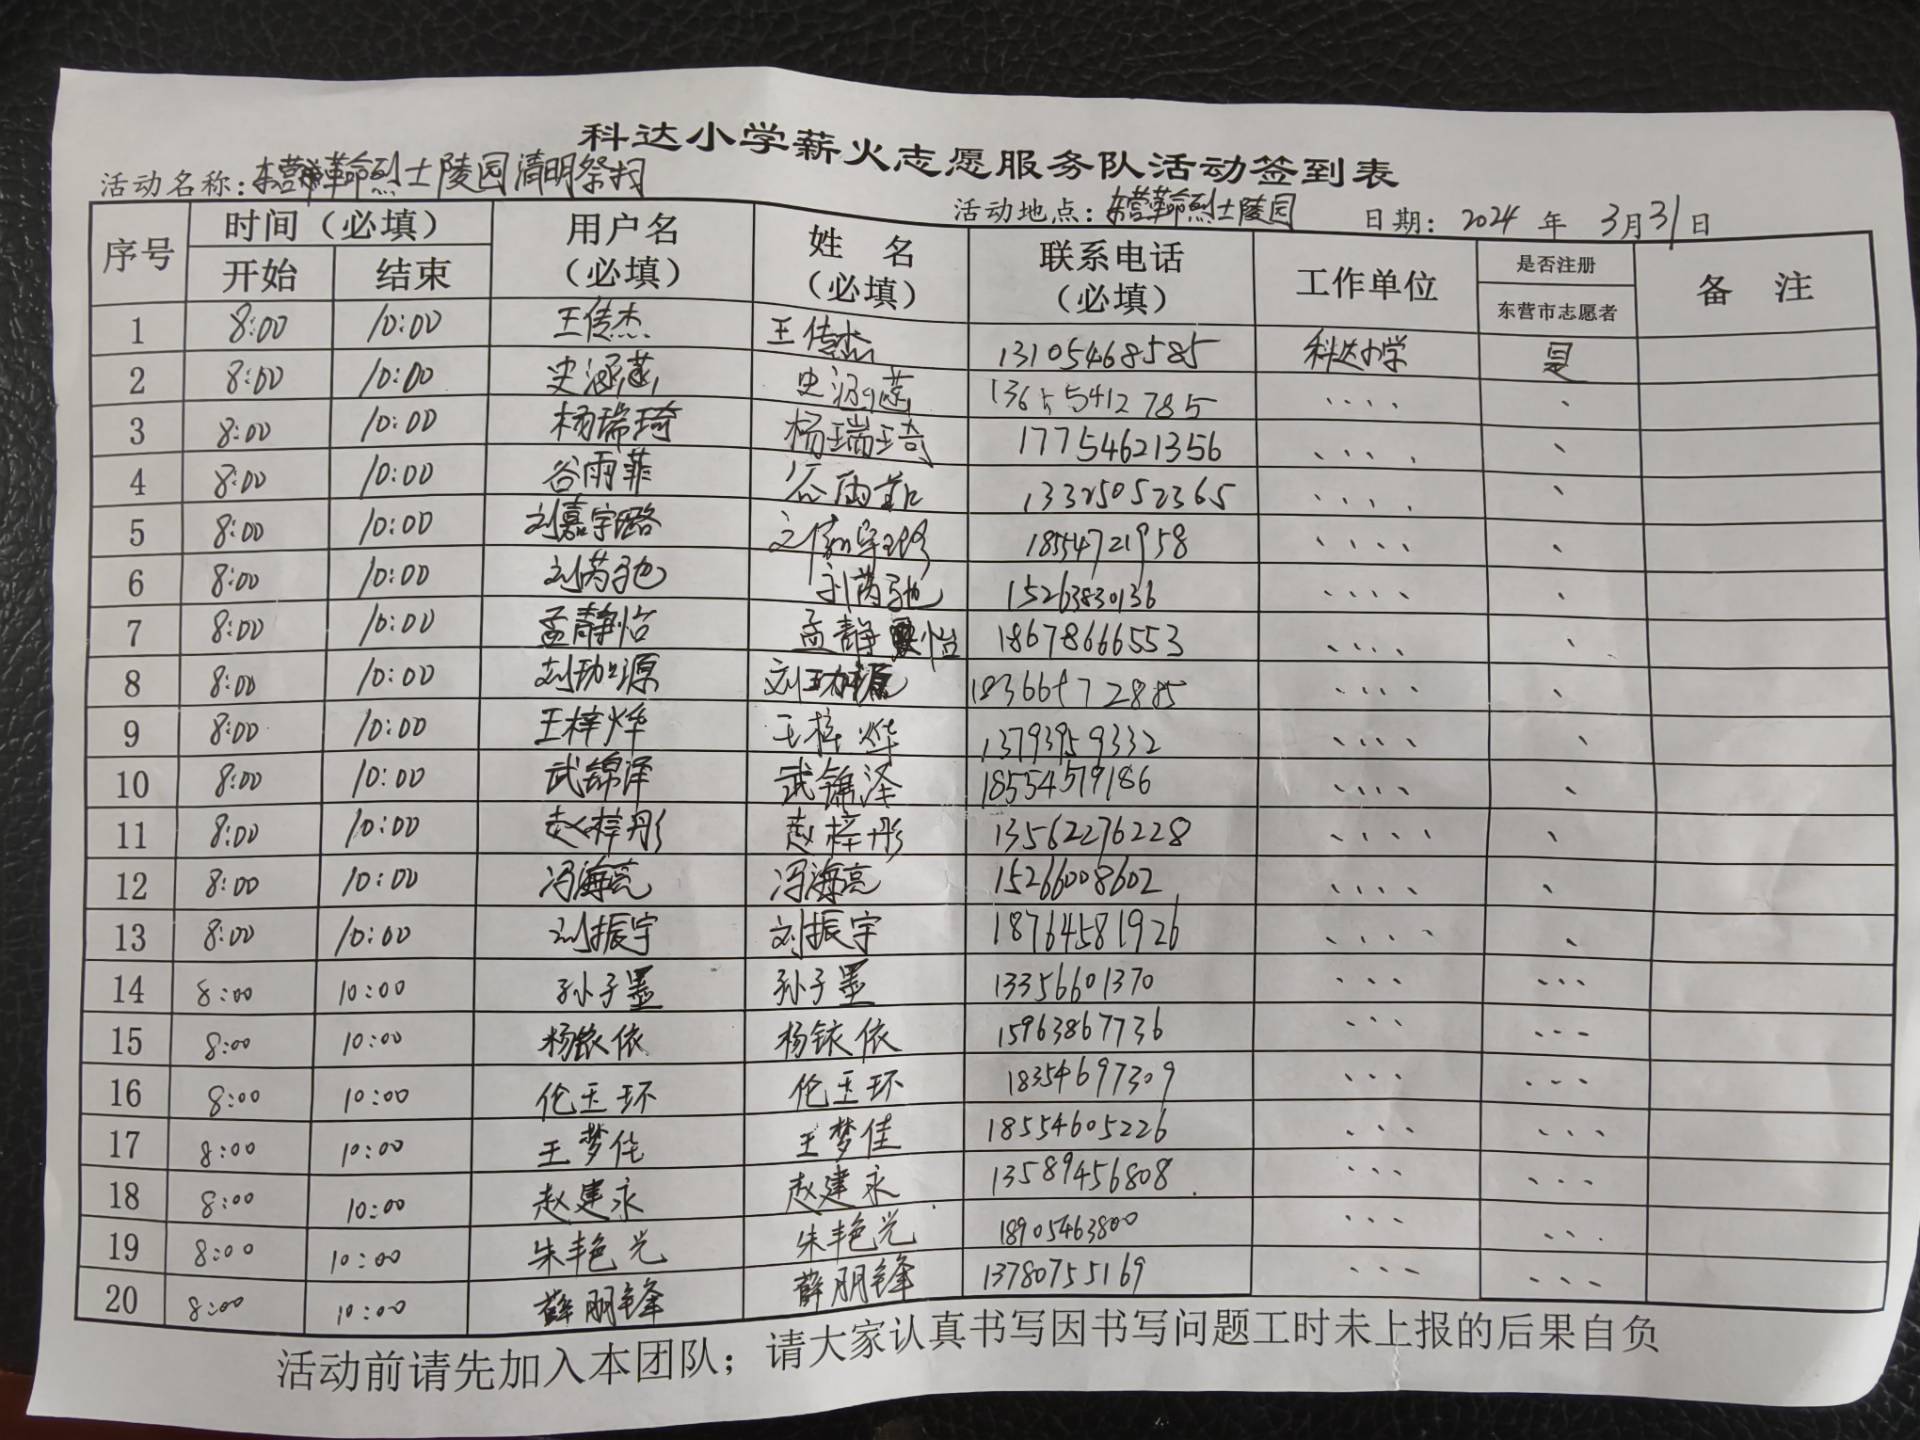 科达小学薪火志愿服务队活动签到表
活动名称：东营市革命烈士陵园清明祭扫 活动地点：东营革命烈士陵园 日期：2024年3月31日
序号 时间（必填） 用户名（必填） 姓名（必填） 联系电话（必填） 工作单位 是否注册东营市志愿者 备注
开始 结束
1 8:00 10:00 王传杰 王传杰 13105468585 科达小学 是
2 8:00 10:00 史涵 史涵 、、、、 、
3 8:00 10:00 杨瑞琦 杨瑞琦 17754621356 、、、、 、
4 8:00 10:00 谷雨菲 谷雨菲 13325052365 、、、、 、
5 8:00 10:00 刘嘉宇璐 18554721958 、、、、 、
6 8:00 10:00 刘芮驰 刘芮驰 15263830136 、、、、 、
7 8:00 10:00 孟静怡 孟静怡 18678666553 、、、、 、
8 8:00 10:00 、、、、 、
9 8:00 10:00 王梓烨 王梓烨 13793959332 、、、、 、
10 8:00 10:00 武锦泽 武锦泽 18554519186 、、、、 、
11 8:00 10:00 赵梓彤 赵梓彤 13562276228 、、、、 、
12 8:00 10:00 冯海亮 冯海亮 15266008602 、、、、 、
13 8:00 10:00 刘振宇 刘振宇 18764581926 、、、、 、
14 8:00 10:00 孙子墨 孙子墨 13356601370 、、、 、、、
15 8:00 10:00 杨铱依 杨铱依 15963867736 、、、 、、、
16 8:00 10:00 伦玉环 伦玉环 18354697309 、、、 、、、
17 8:00 10:00 王梦佳 王梦佳 18554605226 、、、 、、、
18 8:00 10:00 赵建永 赵建永 13589456808 、、、 、、、
19 8:00 10:00 朱艳光 朱艳光 18905463800 、、、 、、、
20 8:00 10:00 薛朋锋 薛朋锋 13780755169 、、、 、、、
活动前请先加入本团队；请大家认真书写因书写问题工时未上报的后果自负